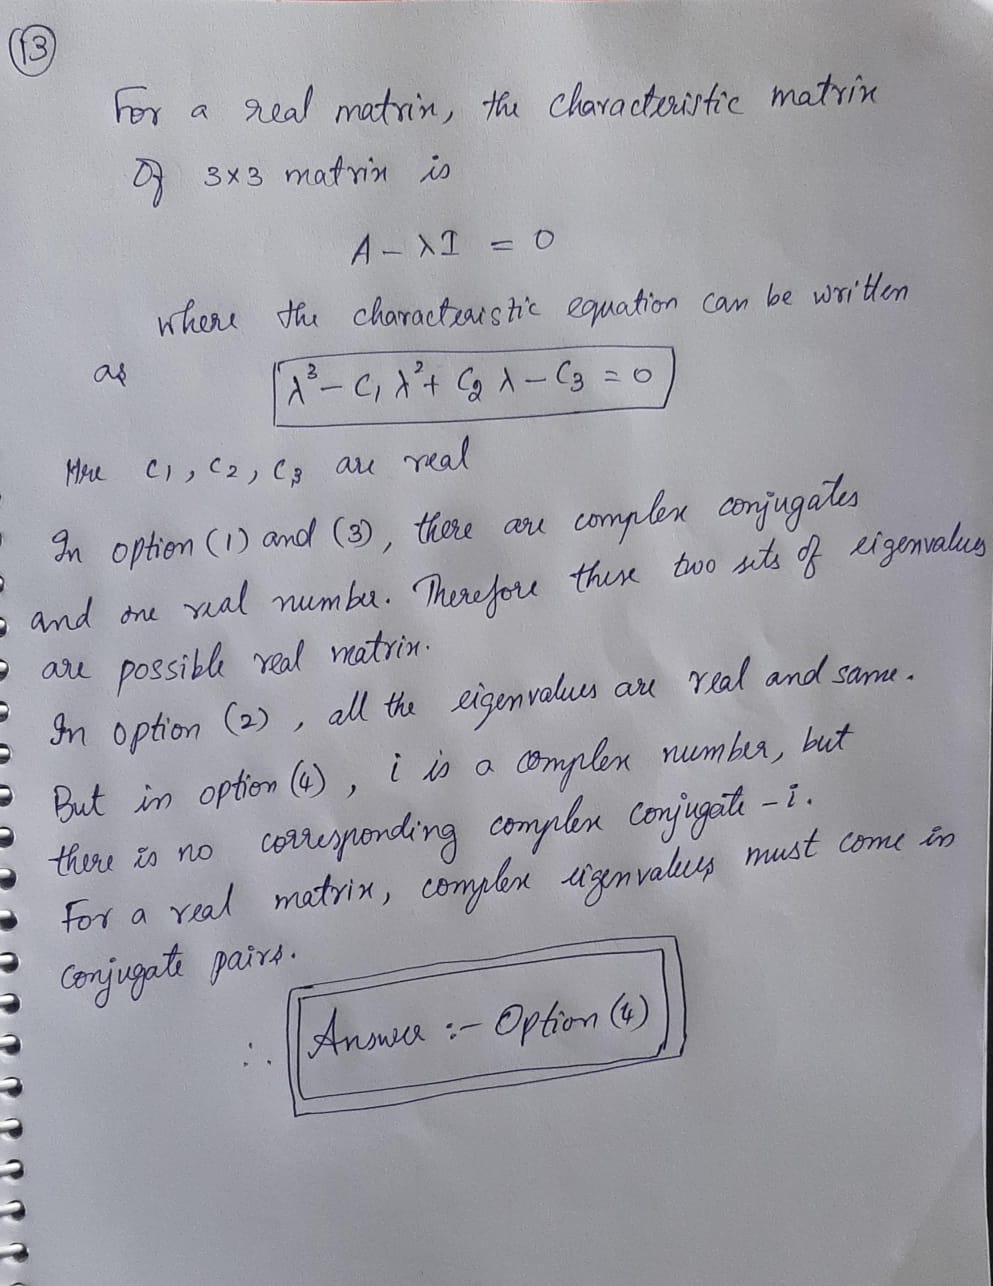 (13)
For a real matrix, the characteristic matrix
Of 3×3 matrix is
A - λI = 0
where the characteristic equation can be written
as λ³ - C₁ λ² + C₂ λ - C₃ = 0
Here C₁, C₂, C₃ are real
In option (1) and (3), there are complex conjugates
and one real number. Therefore these two sets of eigenvalues
are possible real matrix.
In option (2), all the eigenvalues are real and same.
But in option (4), i is a complex number, but
there is no corresponding complex conjugate - i.
For a real matrix, complex eigenvalues must come in
conjugate pairs.
∴ Answer :- Option (4)